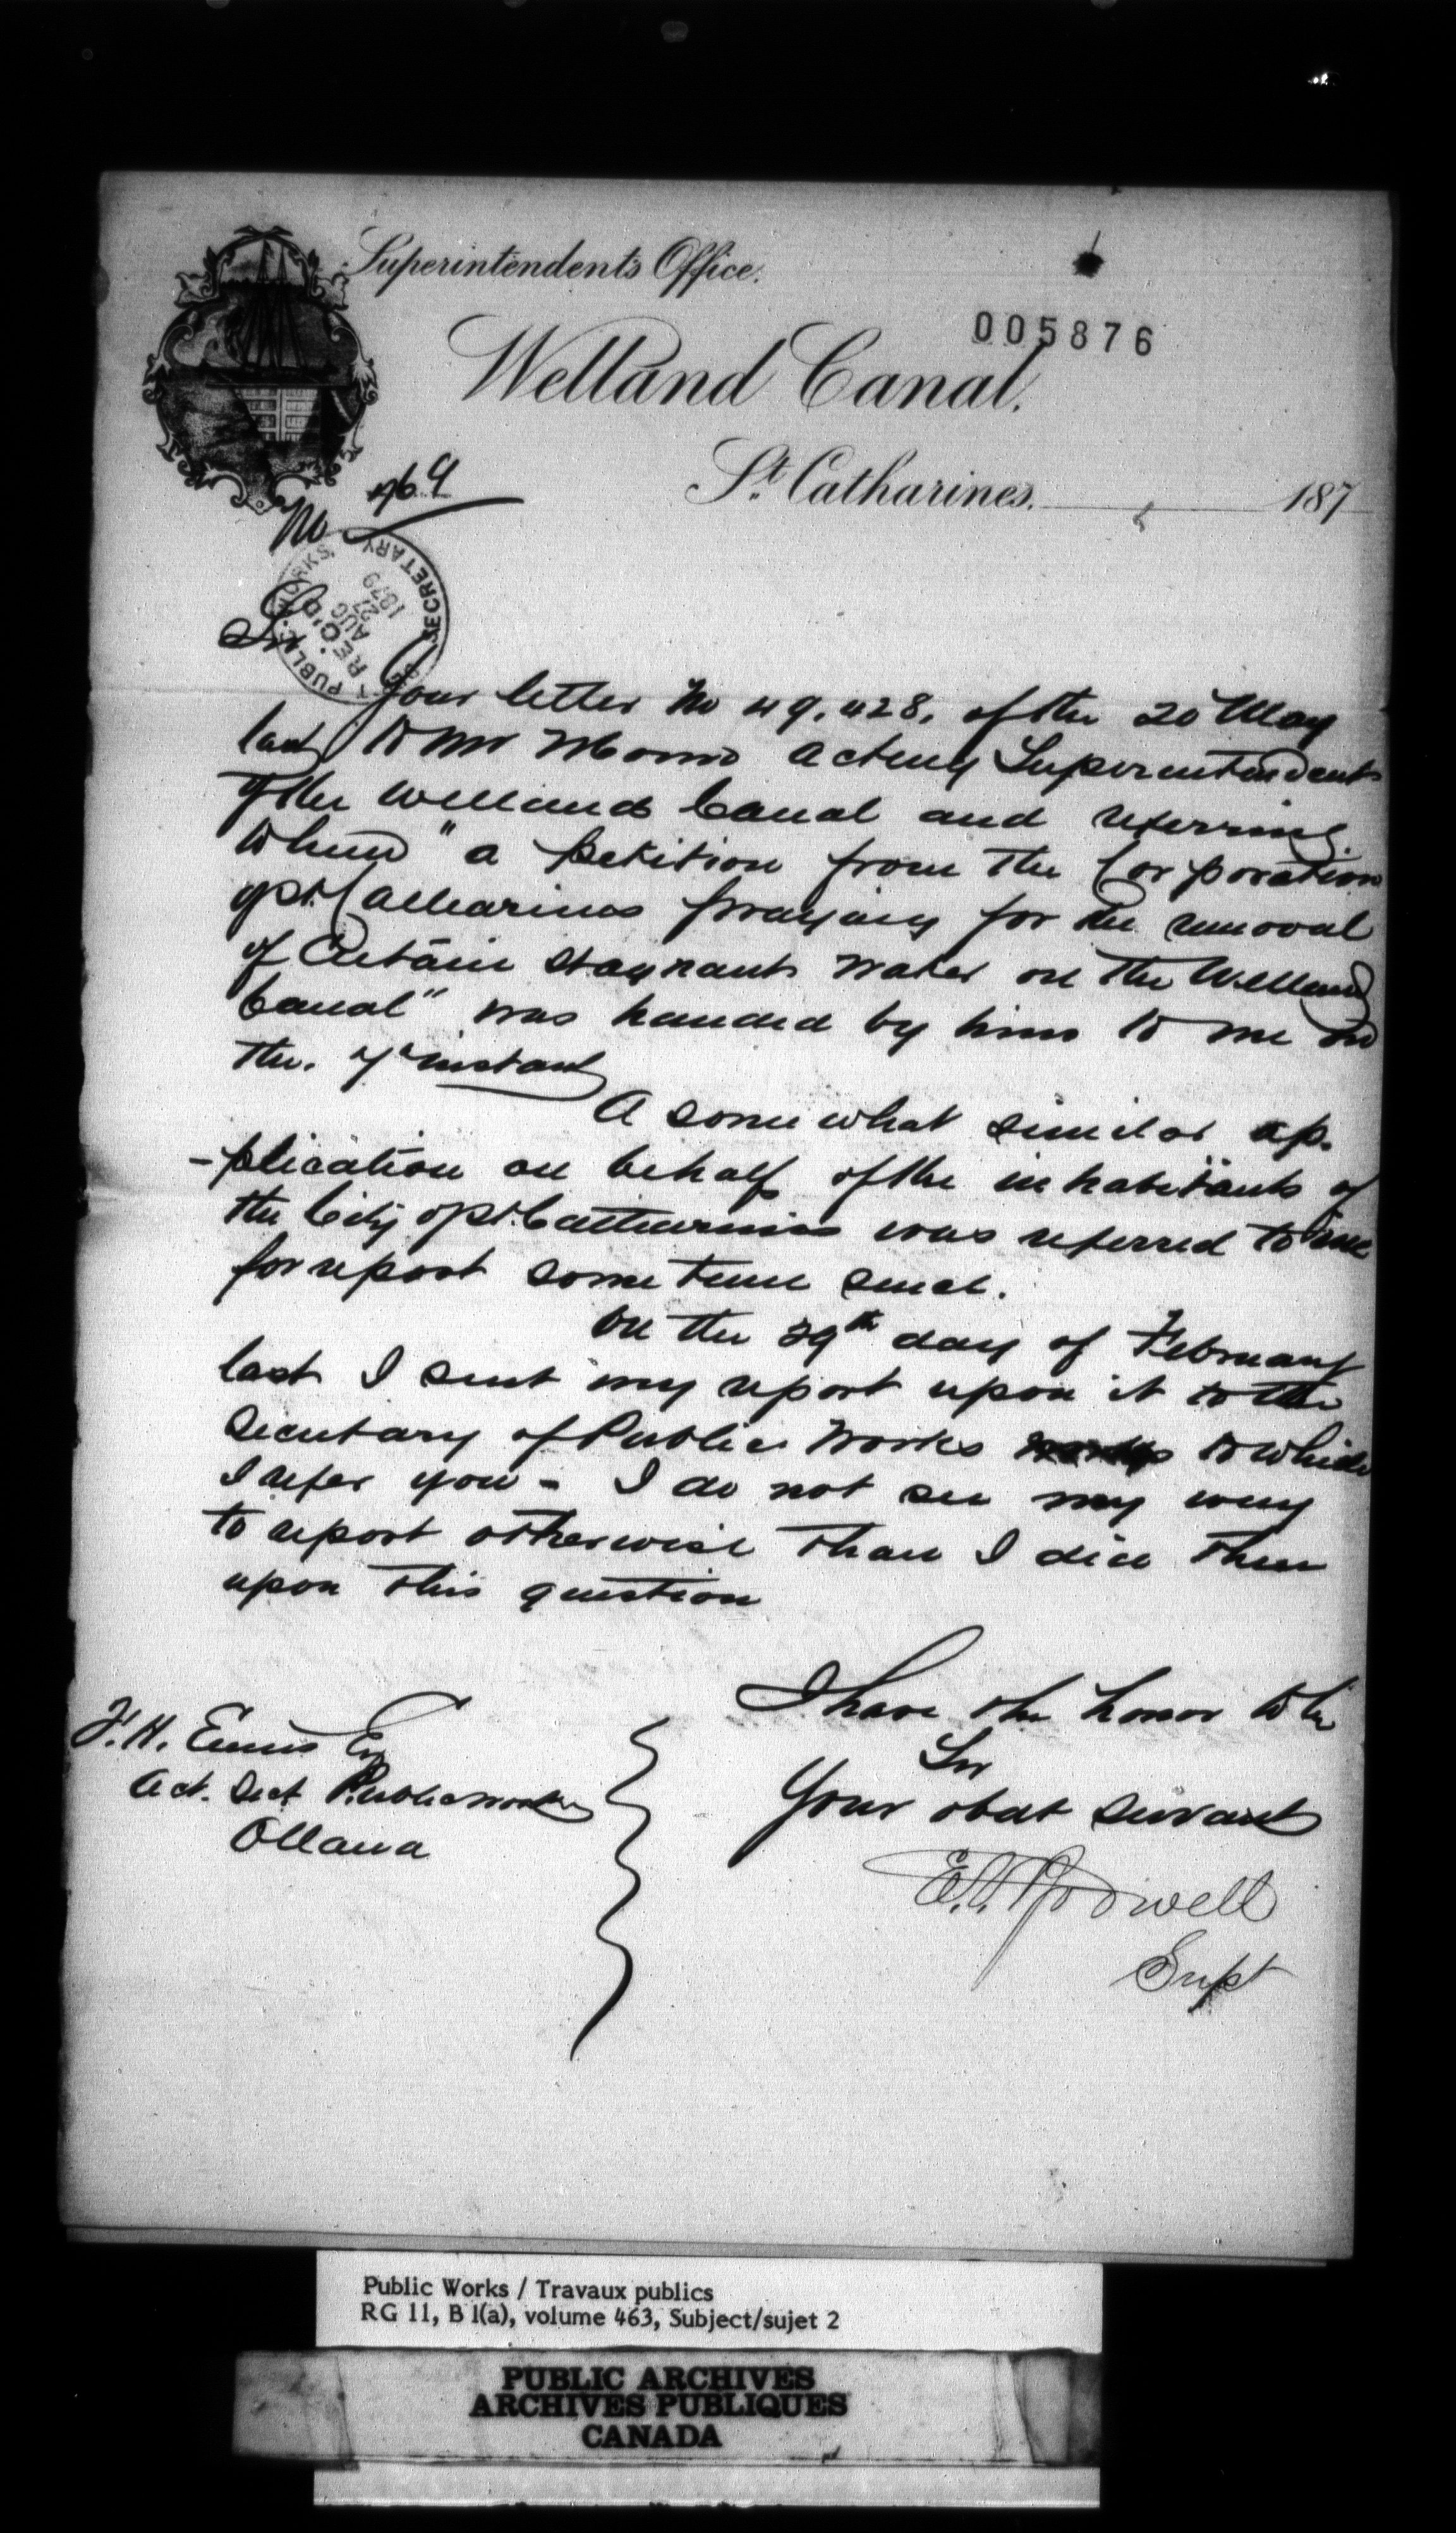 Superintendent's Office.
005876
Welland Canal.
St. Catharines. 187
No 1769
PUBLIC WORKS, SECRETARY
REC'D.
AUG
27
1879
Sir
Your letter No 49.428. of the 20 May
last to Mr Monro Acting Superintendent
of the Welland Canal and referring
to him "a petition from the Corporation
of St. Catharines praying for the removal
of Certain stagnant water on the Welland
Canal" was handed by him to me on
the. 7th instant
A somewhat similar ap.
-plication on behalf of the inhabitants of
the City of St. Catharines was referred to me
for report some time since.
On the 29th day of February
last I sent my report upon it to the
Secretary of Public Works to which
I refer you - I do not see my way
to report otherwise than I did then
upon this question
I have the honor to be
Sir
Your obdt servant
E.C. Bodwell
Supt
F. H. Ennis Esq
Act. Sect Public Works
Ottawa
Public Works / Travaux publics
RG 11, B 1(a), volume 463, Subject/sujet 2
PUBLIC ARCHIVES
ARCHIVES PUBLIQUES
CANADA